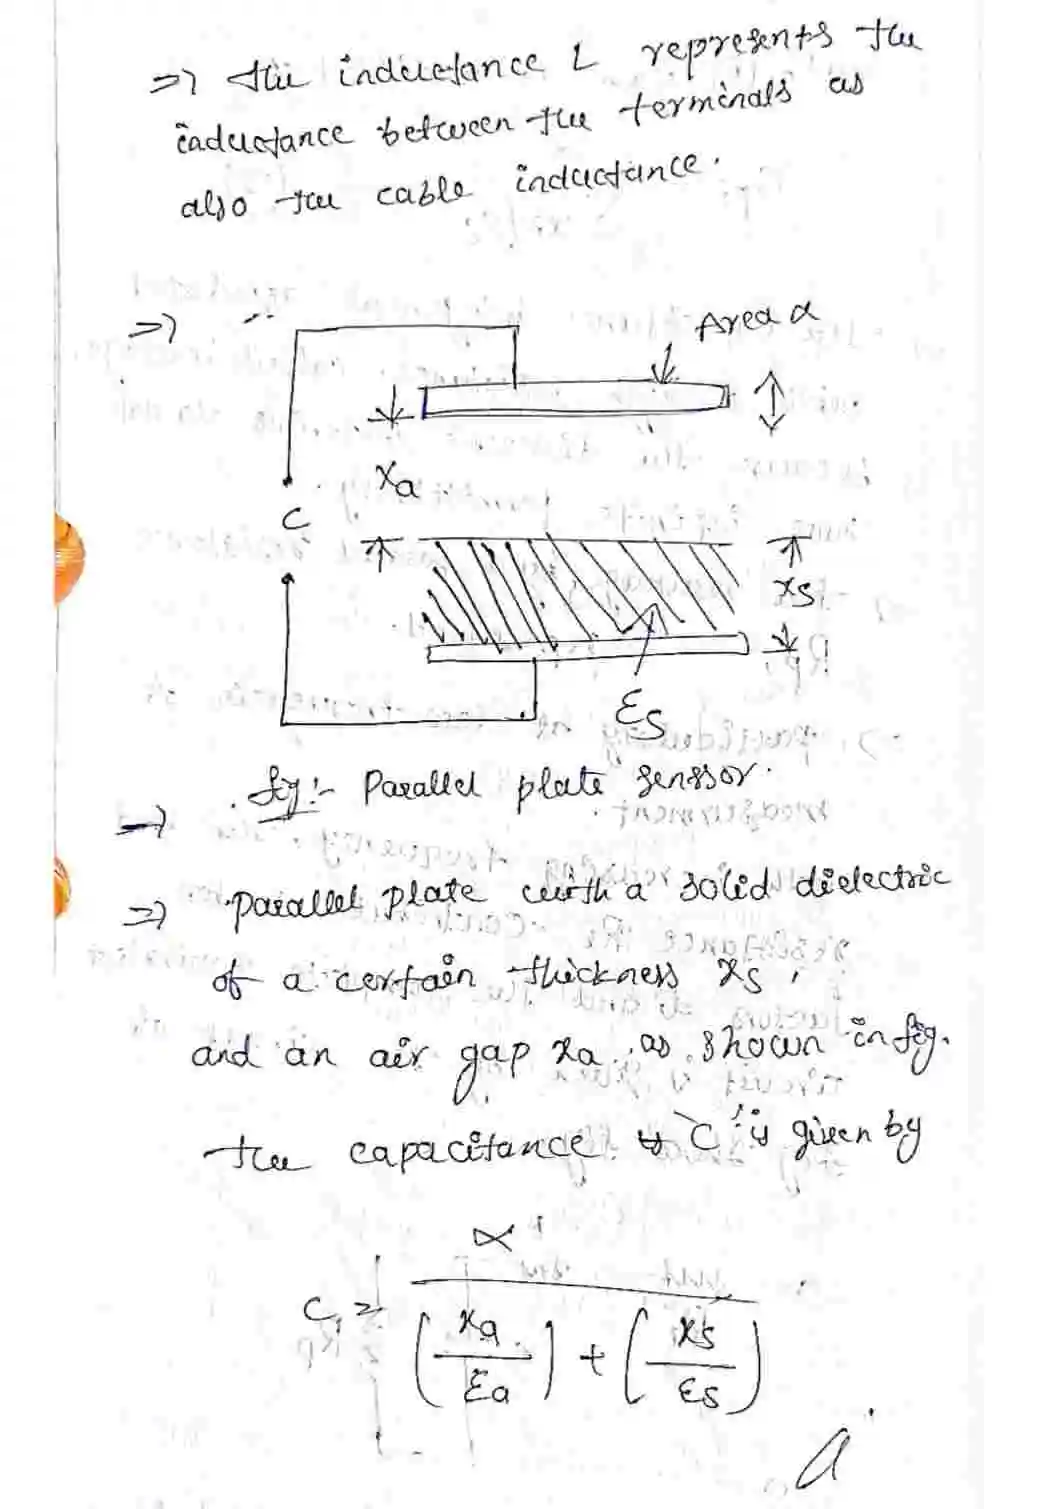 => the inductance L represents the
inductance between the terminals as
also the cable inductance.
=>
Area α
xa
C
xs
εs
fig:- Parallel plate senssor.
=> parallel plate with a solid dielectric
of a certain thickness xs,
and an air gap xa as shown in fig.
the capacitance 'C' is given by
C = α / (xa/εa) + (xs/εs)